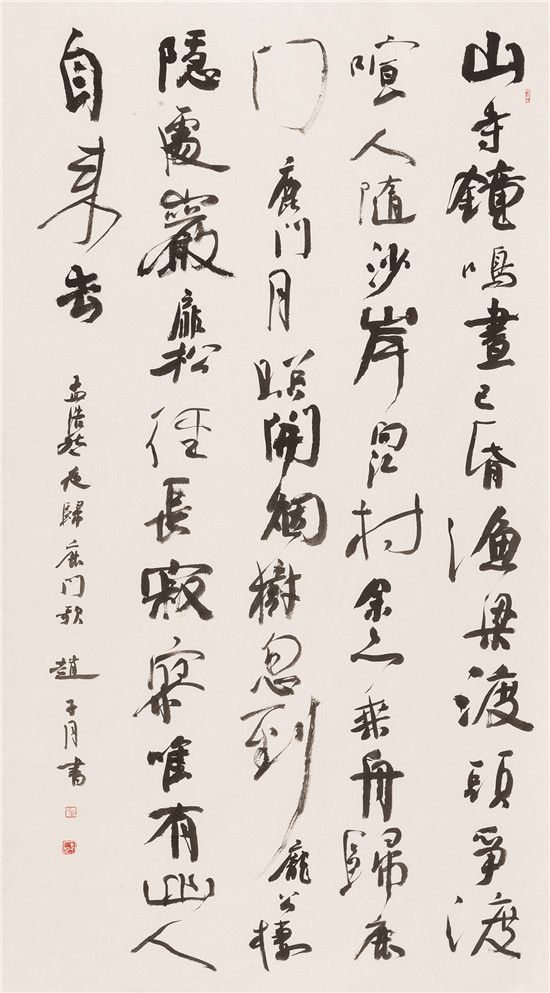 山寺鐘鳴晝已昏漁梁渡頭爭渡
喧人隨沙岸向江村余亦乘舟歸鹿
门鹿门月照開烟樹忽到龐公棲
隱處巖扉松徑長寂寥唯有幽人
自来去
孟浩然夜歸鹿门歌 趙子月書